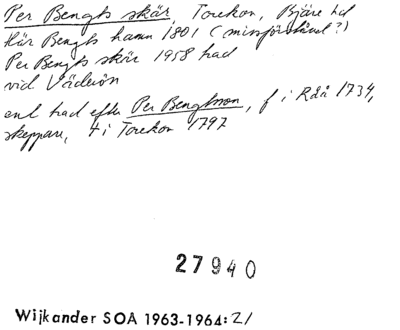 Per Bengts skär, Torekov, Bjäre hd
Kär Bengts hamn 1801 (missförstånd?)
Per Bengts skär 1958 trad
vid Väderön
enl trad efter Per Bengtsson, f i Råå 1734,
skeppare, † i Torekov 1797
27940
Wijkander SOA 1963-1964:21